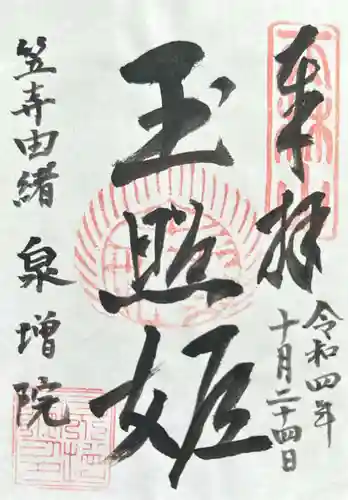 奉拝
令和四年
十月二十四日
玉照姫
笠寺由緒
泉増院